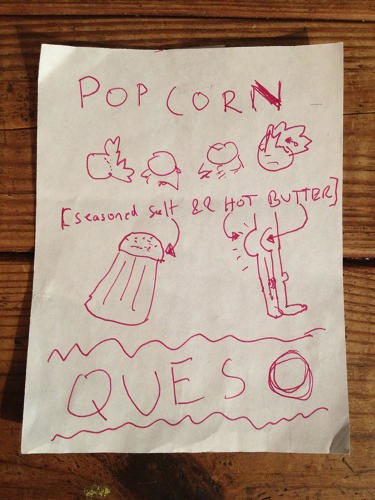 POPCORN
[seasoned salt && HOT BUTTER]
QUESO